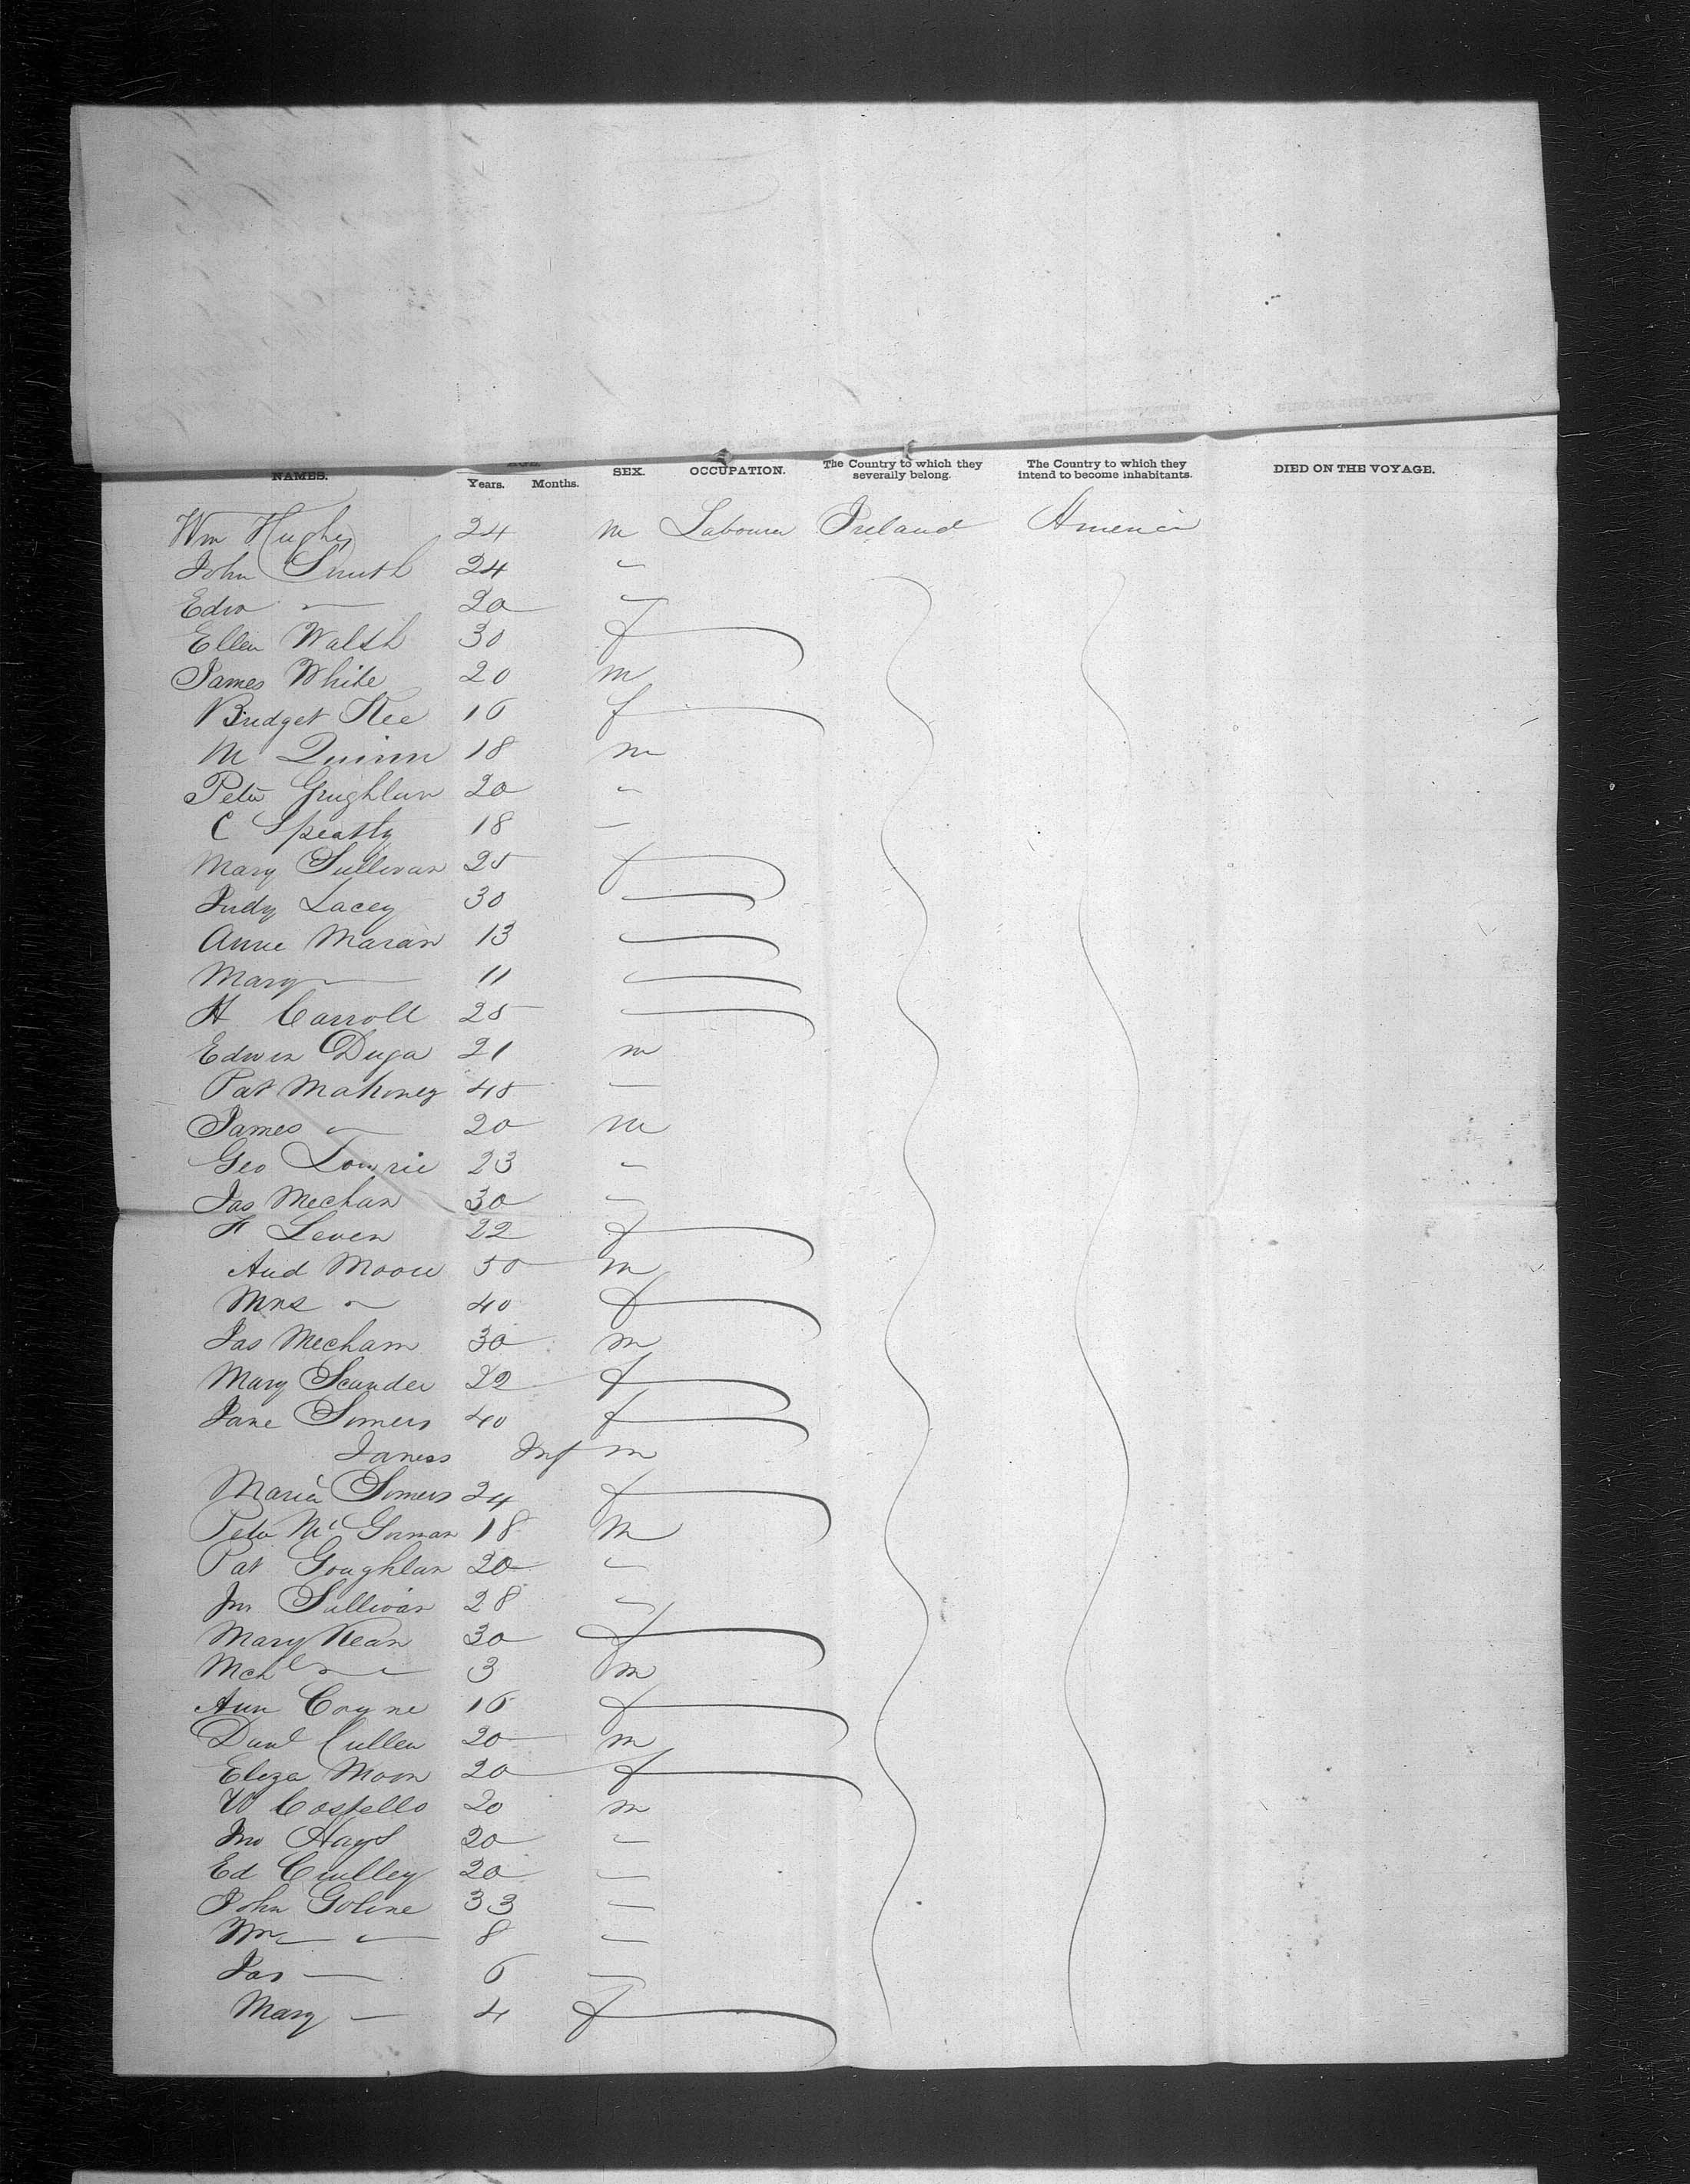 NAMES. AGE. Years. Months. SEX. OCCUPATION. The Country to which they severally belong. The Country to which they intend to become inhabitants. DIED ON THE VOYAGE.
Wm Hughes 24 m Labourer Ireland America
John Smith 24 "
Edw — 20 "
Ellen Walsh 30 f
James White 20 m
Bridget Kee 16 f
M Quinn 18 m
Peter Grughlan 20 "
C 18 "
Mary Sullivan 25 f
Judy Lacey 30 "
Anne Maran 13 "
Mary — 11 "
H Carroll 25 "
Edwin Duga 21 m
Pat Mahoney 45 "
James — 20 m
Geo Lowrie 23 "
Jas Mechan 30 "
F Leven 22 f
And Moore 50 m
Mrs — 40 f
Jas Mecham 30 m
Mary Scander 22 f
Jane Somers 40 f
James Inf m
Maria Somers 24 f
Peter McGorman 18 m
Pat Goughlan 20 "
Jno Sullivan 28 "
Mary Kean 30 f
Mchl — 3 m
Ann Coyne 16 f
Danl Cullen 20 m
Eliza Moon 20 f
W Costello 20 m
Jno Hays 20 "
Ed Culley 20 "
John Goline 33 "
Wm — 8 "
Jas — 6 "
Mary — 4 f